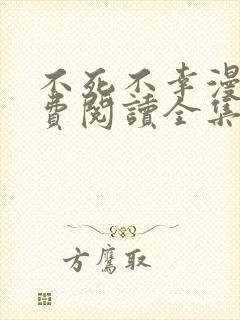 不死不幸漫
費閱讀全集
方鷹取